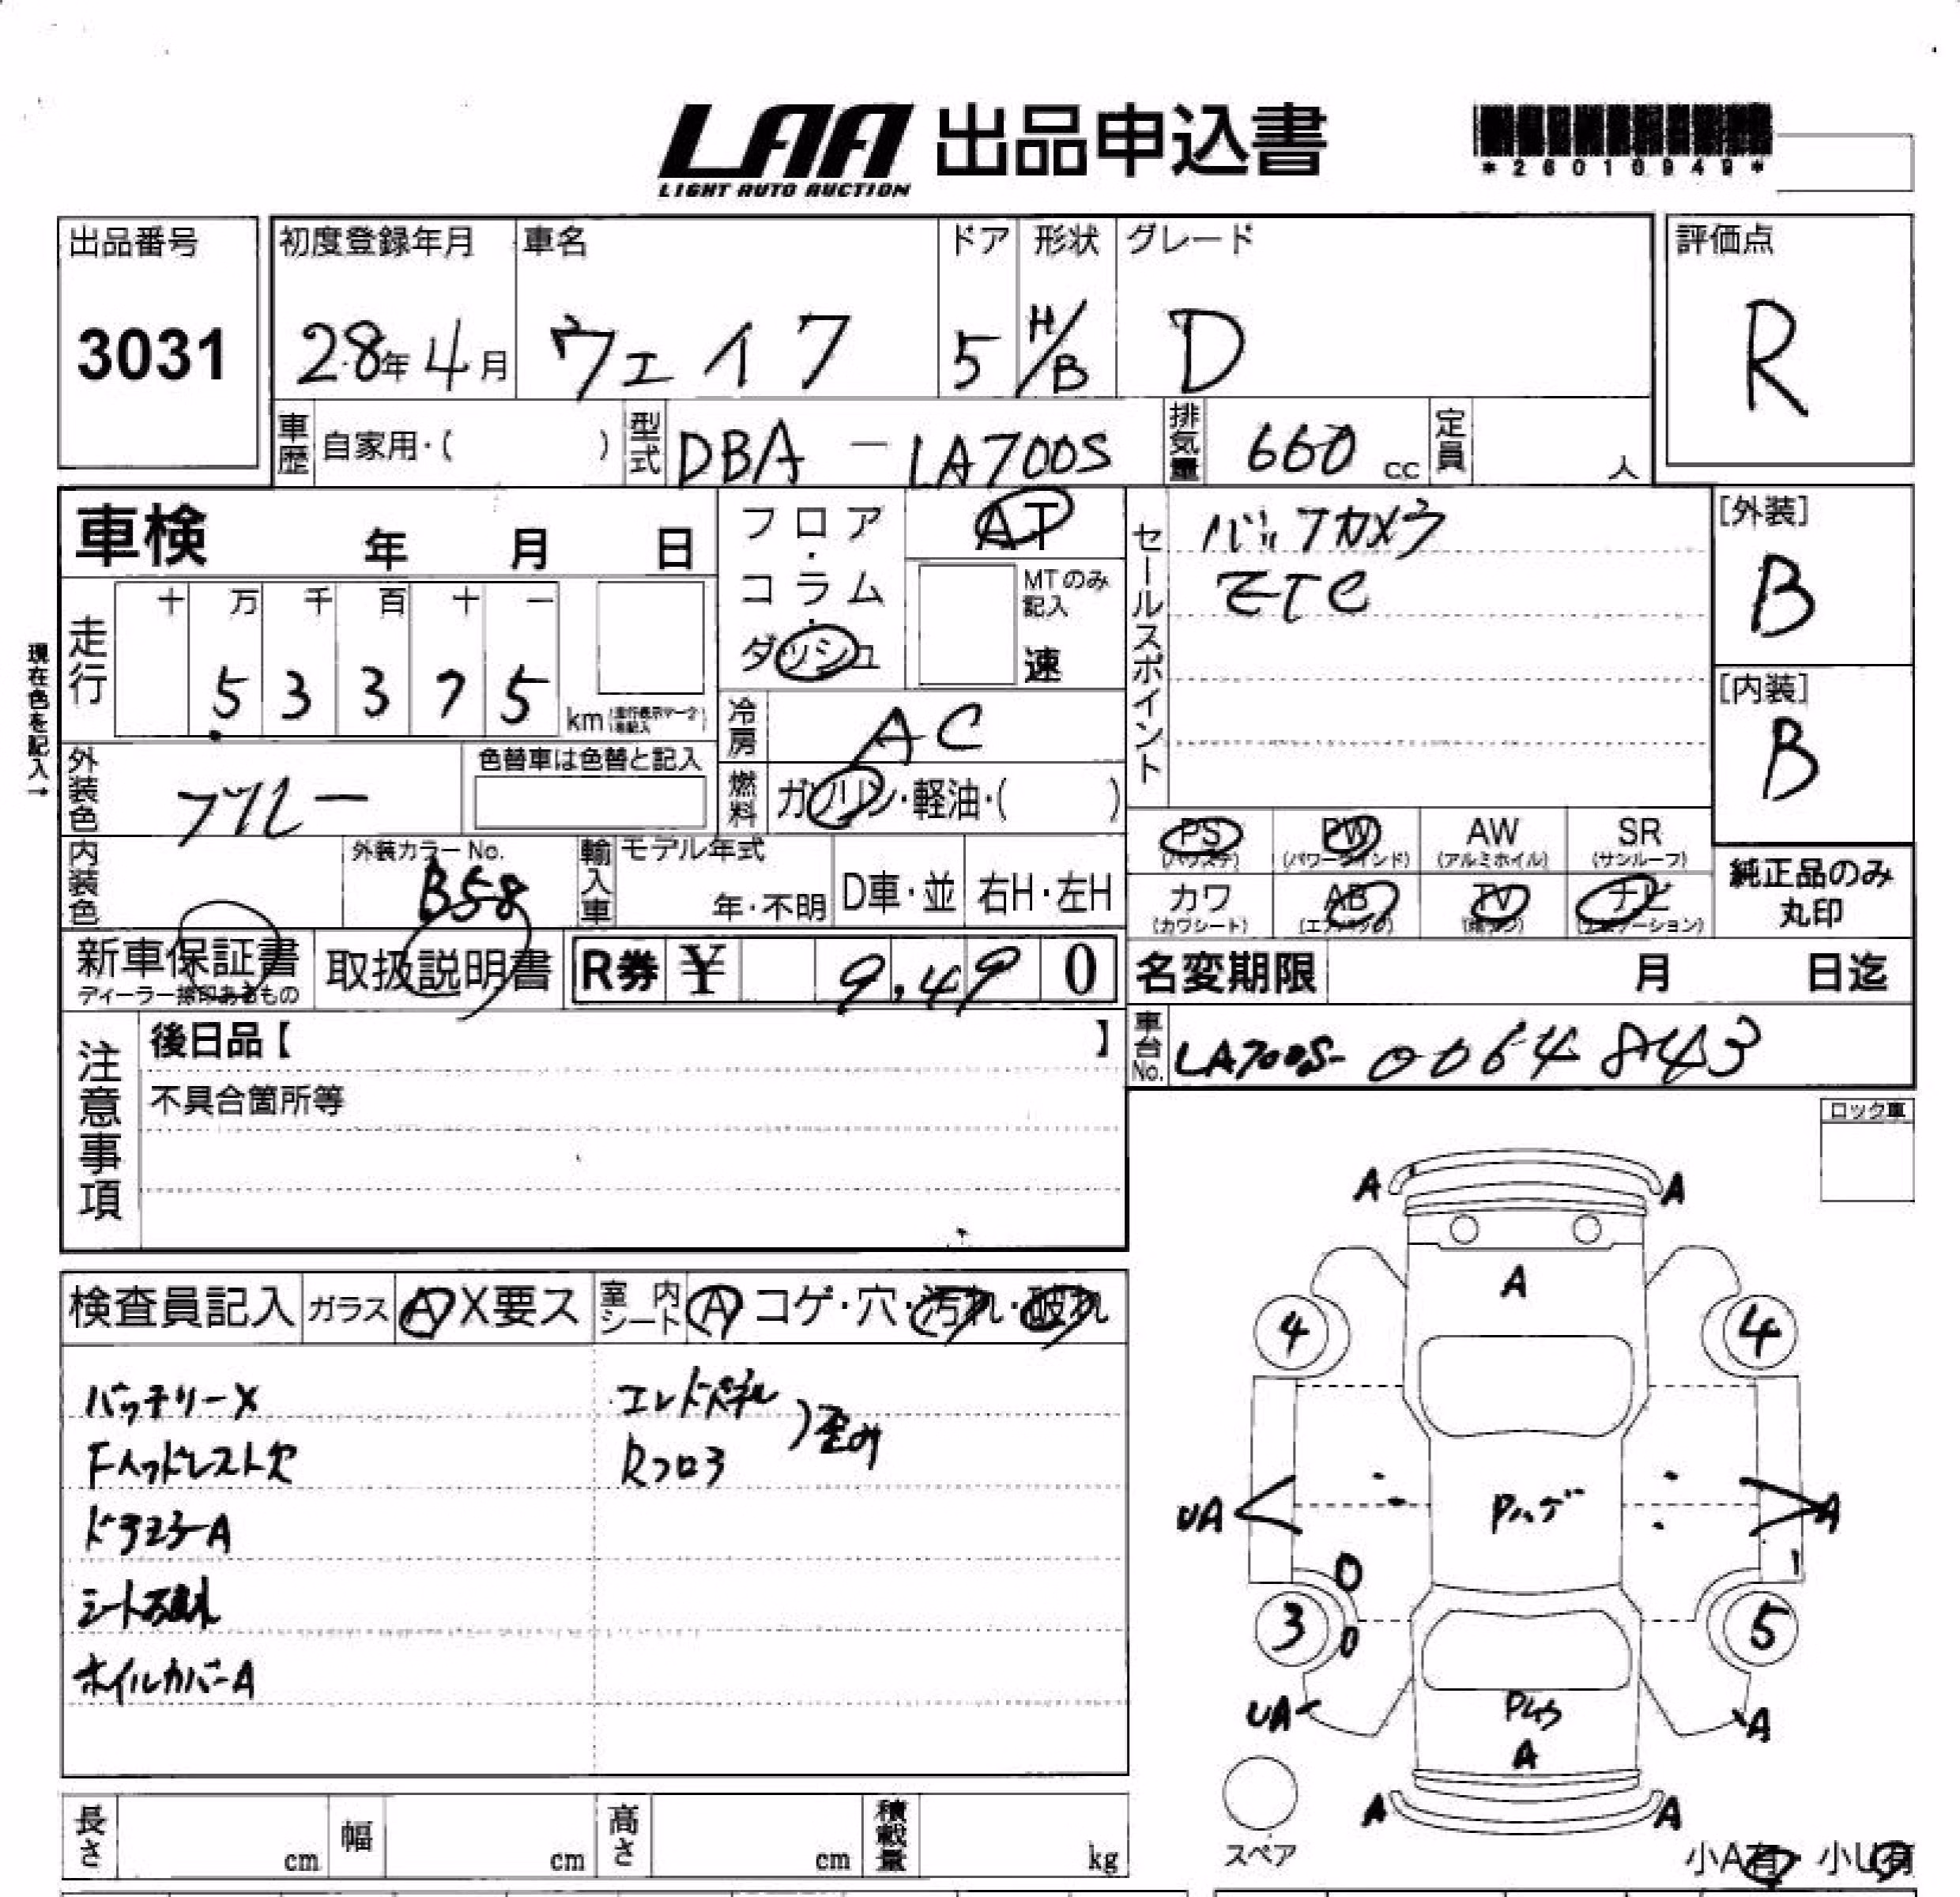 LAA 出品申込書
LIGHT AUTO AUCTION
*26010949*
出品番号 初度登録年月 車名 ドア 形状 グレード 評価点
3031 28年4月 ウェイク 5 H/B D R
車歴 自家用・( ) 型式 DBA-LA700S 排気量 660 cc 定員 人
車検 年 月 日
フロア・コラム・ダッシュ
AT
MTのみ記入
速
現在色を記入→
走行 十 万 千 百 十 一
5 3 3 7 5 km
セールスポイント
バックカメラ
ETC
[外装]
B
[内装]
B
冷房 AC
燃料 ガソリン・軽油・( )
外装色 ブルー 色替車は色替と記入
内装色 外装カラーNo. B58
輸入車 モデル年式 年・不明 D車・並 右H・左H
PS (パワステ) PW (パワーウインド) AW (アルミホイル) SR (サンルーフ)
カワ (カワシート) AB (エアバッグ) TV ナビ (ナビゲーション)
純正品のみ
丸印
新車保証書 取扱説明書 R券 ¥ 9,490
ディーラー捺印あるもの
名変期限 月 日迄
車台No. LA700S-0064843
注意事項
後日品【 】
不具合箇所等
ロック車
検査員記入 ガラス A X要ス 室内シート A コゲ・穴・汚れ・破れ
バッテリーX
Fヘッドレスト欠
ドアミラーA
シート破れ
ホイルカバーA
エンドパネル
Rフロア
)歪み
A A
A
4 4
UA Pハゲ A
0 1
3 0 5
UA A
A
A A
スペア
小A有 小U有
長さ cm 幅 cm 高さ cm 積載量 kg